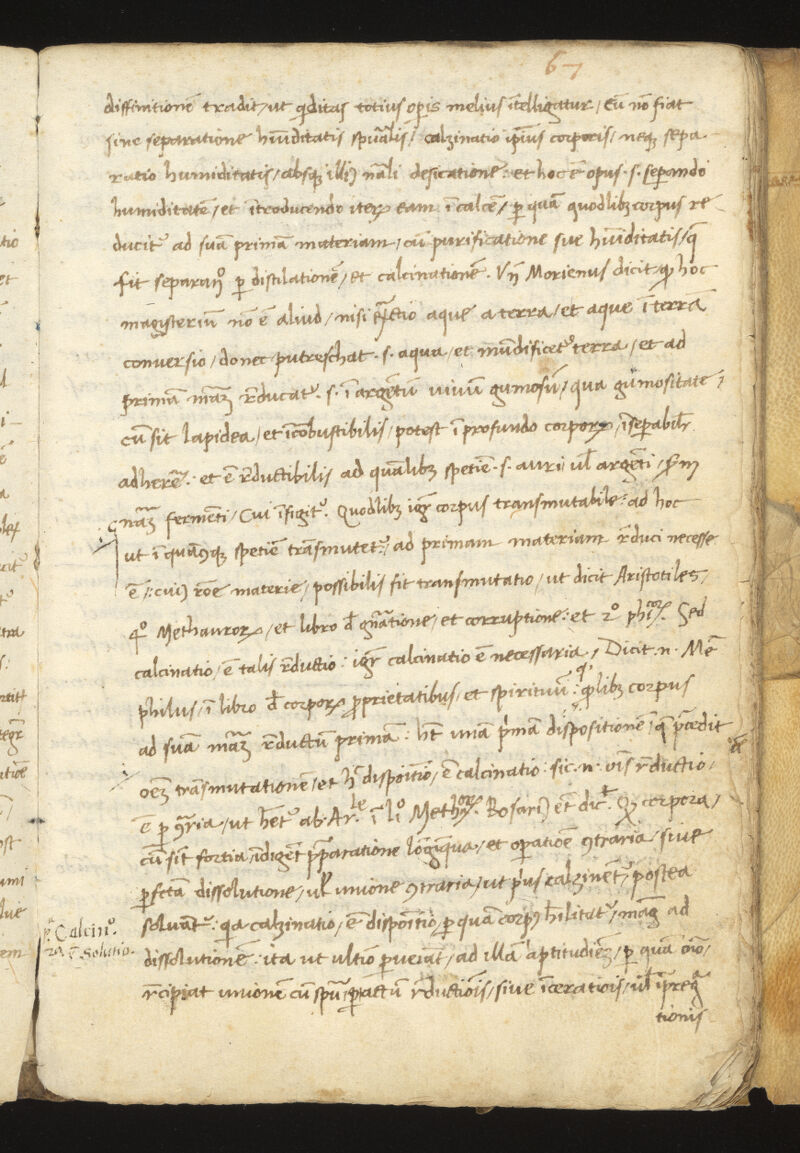 67
diffinitionē tradit, ut qͥditas totius oꝑis melius ītelligatur, Cū nō fiat
sine separatione hūiditatis spūalis, calzinatio ip̄ius corporis, neqꝫ sepa
ratio humiditatis, absqꝫ illiꝰ nāli desicatione: et hoc ē opus .s. seꝑando
humiditatē, et ītroducendo iteꝝ eam ī calcē, ꝑ quā quodlibꝫ corpus re
ducitͬ ad suā primā materiam, cū purificatione sue hūiditatis, q̄
fit separanͦ ꝑ distilationē, et calcinationē. Vn̄ Morienus dicit, ꝙ hoc
magisteriū nō ē aliud, nisi ext̄ctio aque a terra, et aque ī terrā
conversio, donec putreschat .s. aqua, et mūdificetͬ terra, et ad
primā māꝫ rͤducatͬ .s. ī argētū vivū gumosū, qua gūmositate,
cū sit lapidea, et īcōbustibilis, potest ī profundo corpoꝝ, īseꝑabilr̄
adherē: et ē rͤductibilis ad quālibꝫ spetiē .s. auri ul̄ argēti, ẜm
nāꝫ fermēti, Cui īfigitͬ. Quodlibꝫ igͬ corpus transmutabile: ad hoc
ut ī quācūqꝫ spetiē trāsmutetͬ, ad primam materiam rͤduci necesse
ē: cuiꝰ rōe materie, possibilis fit transmutatio, ut dicit Aristotiles,
4ͦ Methauroꝝ, et libro d̄ gn̄atione, et corruptione: et 2ͦ phicoꝝ. Sed
calcinatio, ē talis rͤductio: igͬ calcinatio ē necessaria, Dicit .n. Me
philus, ī libro d̄ corpoꝝ ꝓprietatibus, et spirituū: qͥ qͦlibꝫ corpus
ad suā māꝫ rͤductū primā: hēt unā pͥmā dispositionē ī q̄ p̄cedit
oēm trāsmutationē, et h̄ dispoītio, ē calcinatio: sic .n. oīs rͤductio,
ē ꝑ ꝯͬria, ut hētͬ ab Ar.le ī liͦ Methoꝝ. Rosariꝰ ēt dicͭ. Qꝫ corpora,
cū sīt fortia, īdigēt p̄paratione lōgīqua, et oꝑatiōe ꝯtraria, sive
ꝑfctā dissolutione, ul̄ unione ꝯtraria, ut pͥus calzinētͬ, postea
solvātͬ: qͥa calzinatio, ē dispoītio, ꝑ quā corpꝰ h̄ilitatͬ, magͥ ad
dissolutionē: ita ut ultīo ꝑveiāt, ad illā aptitudiēꝫ, ꝑ quā oīo,
rͤcipiat unionem cū spū, ꝑ actū rͤductiōis, sive īceratiōis, ul̄ īpregͣ
tionis
Calcinͦ.
ē Solutio.